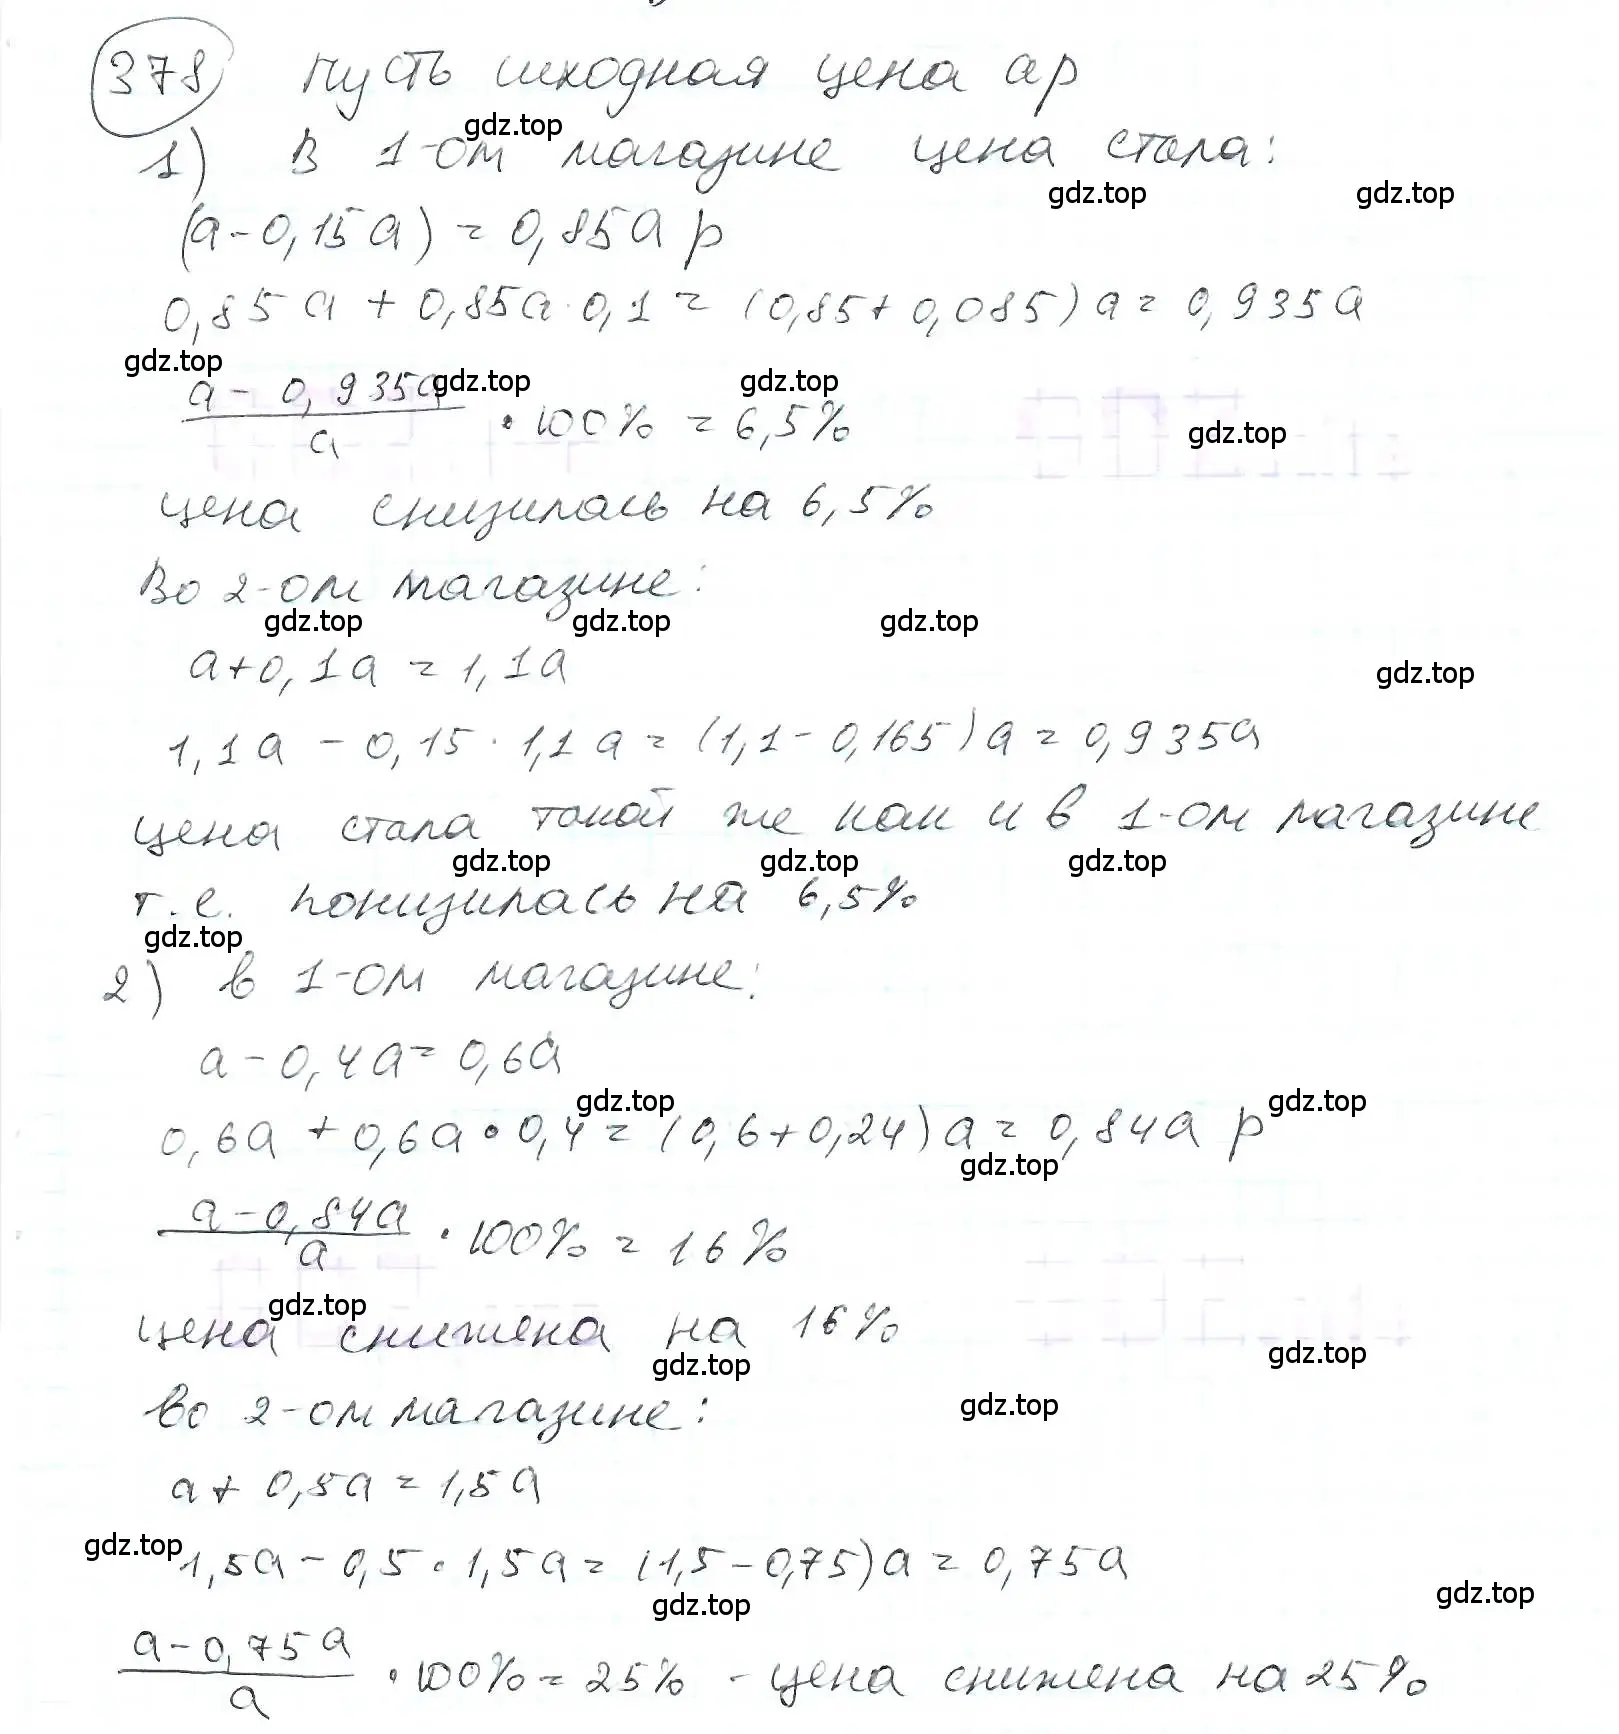 378 Пусть исходная цена а р
gdz.top
1) В 1-ом магазине цена стала:
gdz.top gdz.top
(а-0,15а) = 0,85а р
0,85а + 0,85а·0,1 = (0,85+0,085)а = 0,935а
gdz.top gdz.top gdz.top
(а - 0,935а)/а · 100% = 6,5%
gdz.top
цена снизилась на 6,5%
Во 2-ом магазине:
gdz.top gdz.top gdz.top
а+0,1а = 1,1а
gdz.top
1,1а - 0,15·1,1а = (1,1-0,165)а = 0,935а
цена стала такой же как и в 1-ом магазине
gdz.top gdz.top gdz.top
т.е. понизилась на 6,5%
gdz.top
2) в 1-ом магазине:
а-0,4а = 0,6а
gdz.top gdz.top
0,6а + 0,6а·0,4 = (0,6+0,24)а = 0,84а р
gdz.top
(а-0,84а)/а · 100% = 16%
gdz.top
цена снижена на 16%
gdz.top gdz.top
во 2-ом магазине:
gdz.top
а+ 0,5а = 1,5а
gdz.top
1,5а - 0,5·1,5а = (1,5-0,75)а = 0,75а
gdz.top gdz.top
(а-0,75а)/а · 100% = 25% - цена снижена на 25%